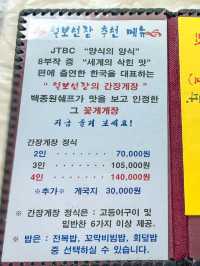 털보선장 추천 메뉴
JTBC "양식의 양식"
8부작 중 "세계의 삭힌 맛"
편에 출연한 한국을 대표하는
"털보선장의 간장게장"
백종원쉐프가 맛을 보고 인정한
그 꽃게게장
지금 즐겨 보세요!
간장게장 정식
2인 70,000원
3인 105,000원
4인 140,000원
※추가※ 게국지 30,000원
※ 간장게장 정식은 : 고등어구이 및
밑반찬 6가지 이상 제공.
※ 밥은 : 전복밥, 꼬막비빔밥, 회덮밥
중 선택하실 수 있습니다.